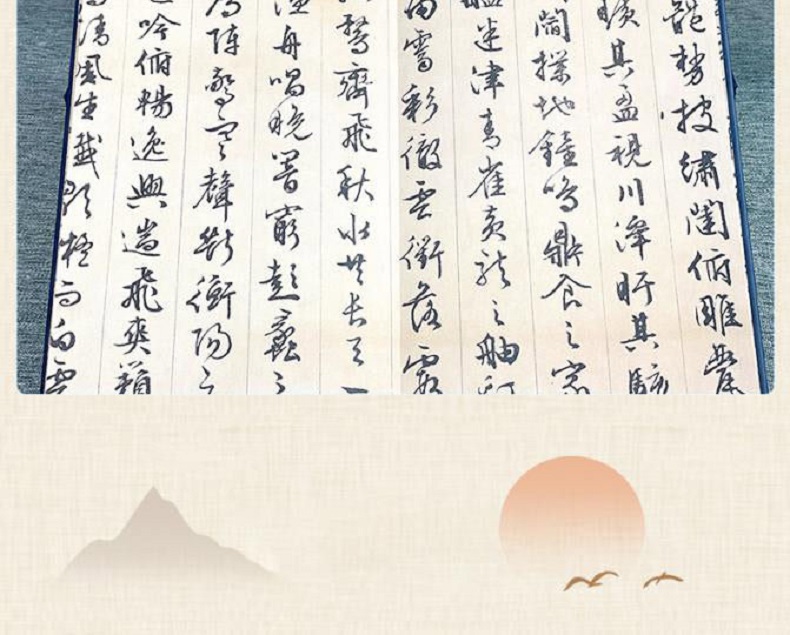 體勢披繡闥俯雕甍
曠其盈視川澤盱其駭
閻撲地鐘鳴鼎食之家
艦迷津青雀黃龍之舳虹
雨霽彩徹雲衢落霞
鶩齊飛秋水共長天一
漁舟唱晚響窮彭蠡之
陣驚寒聲斷衡陽之
吟俯暢逸興遄飛爽籟
清風生纖歌凝而白雲